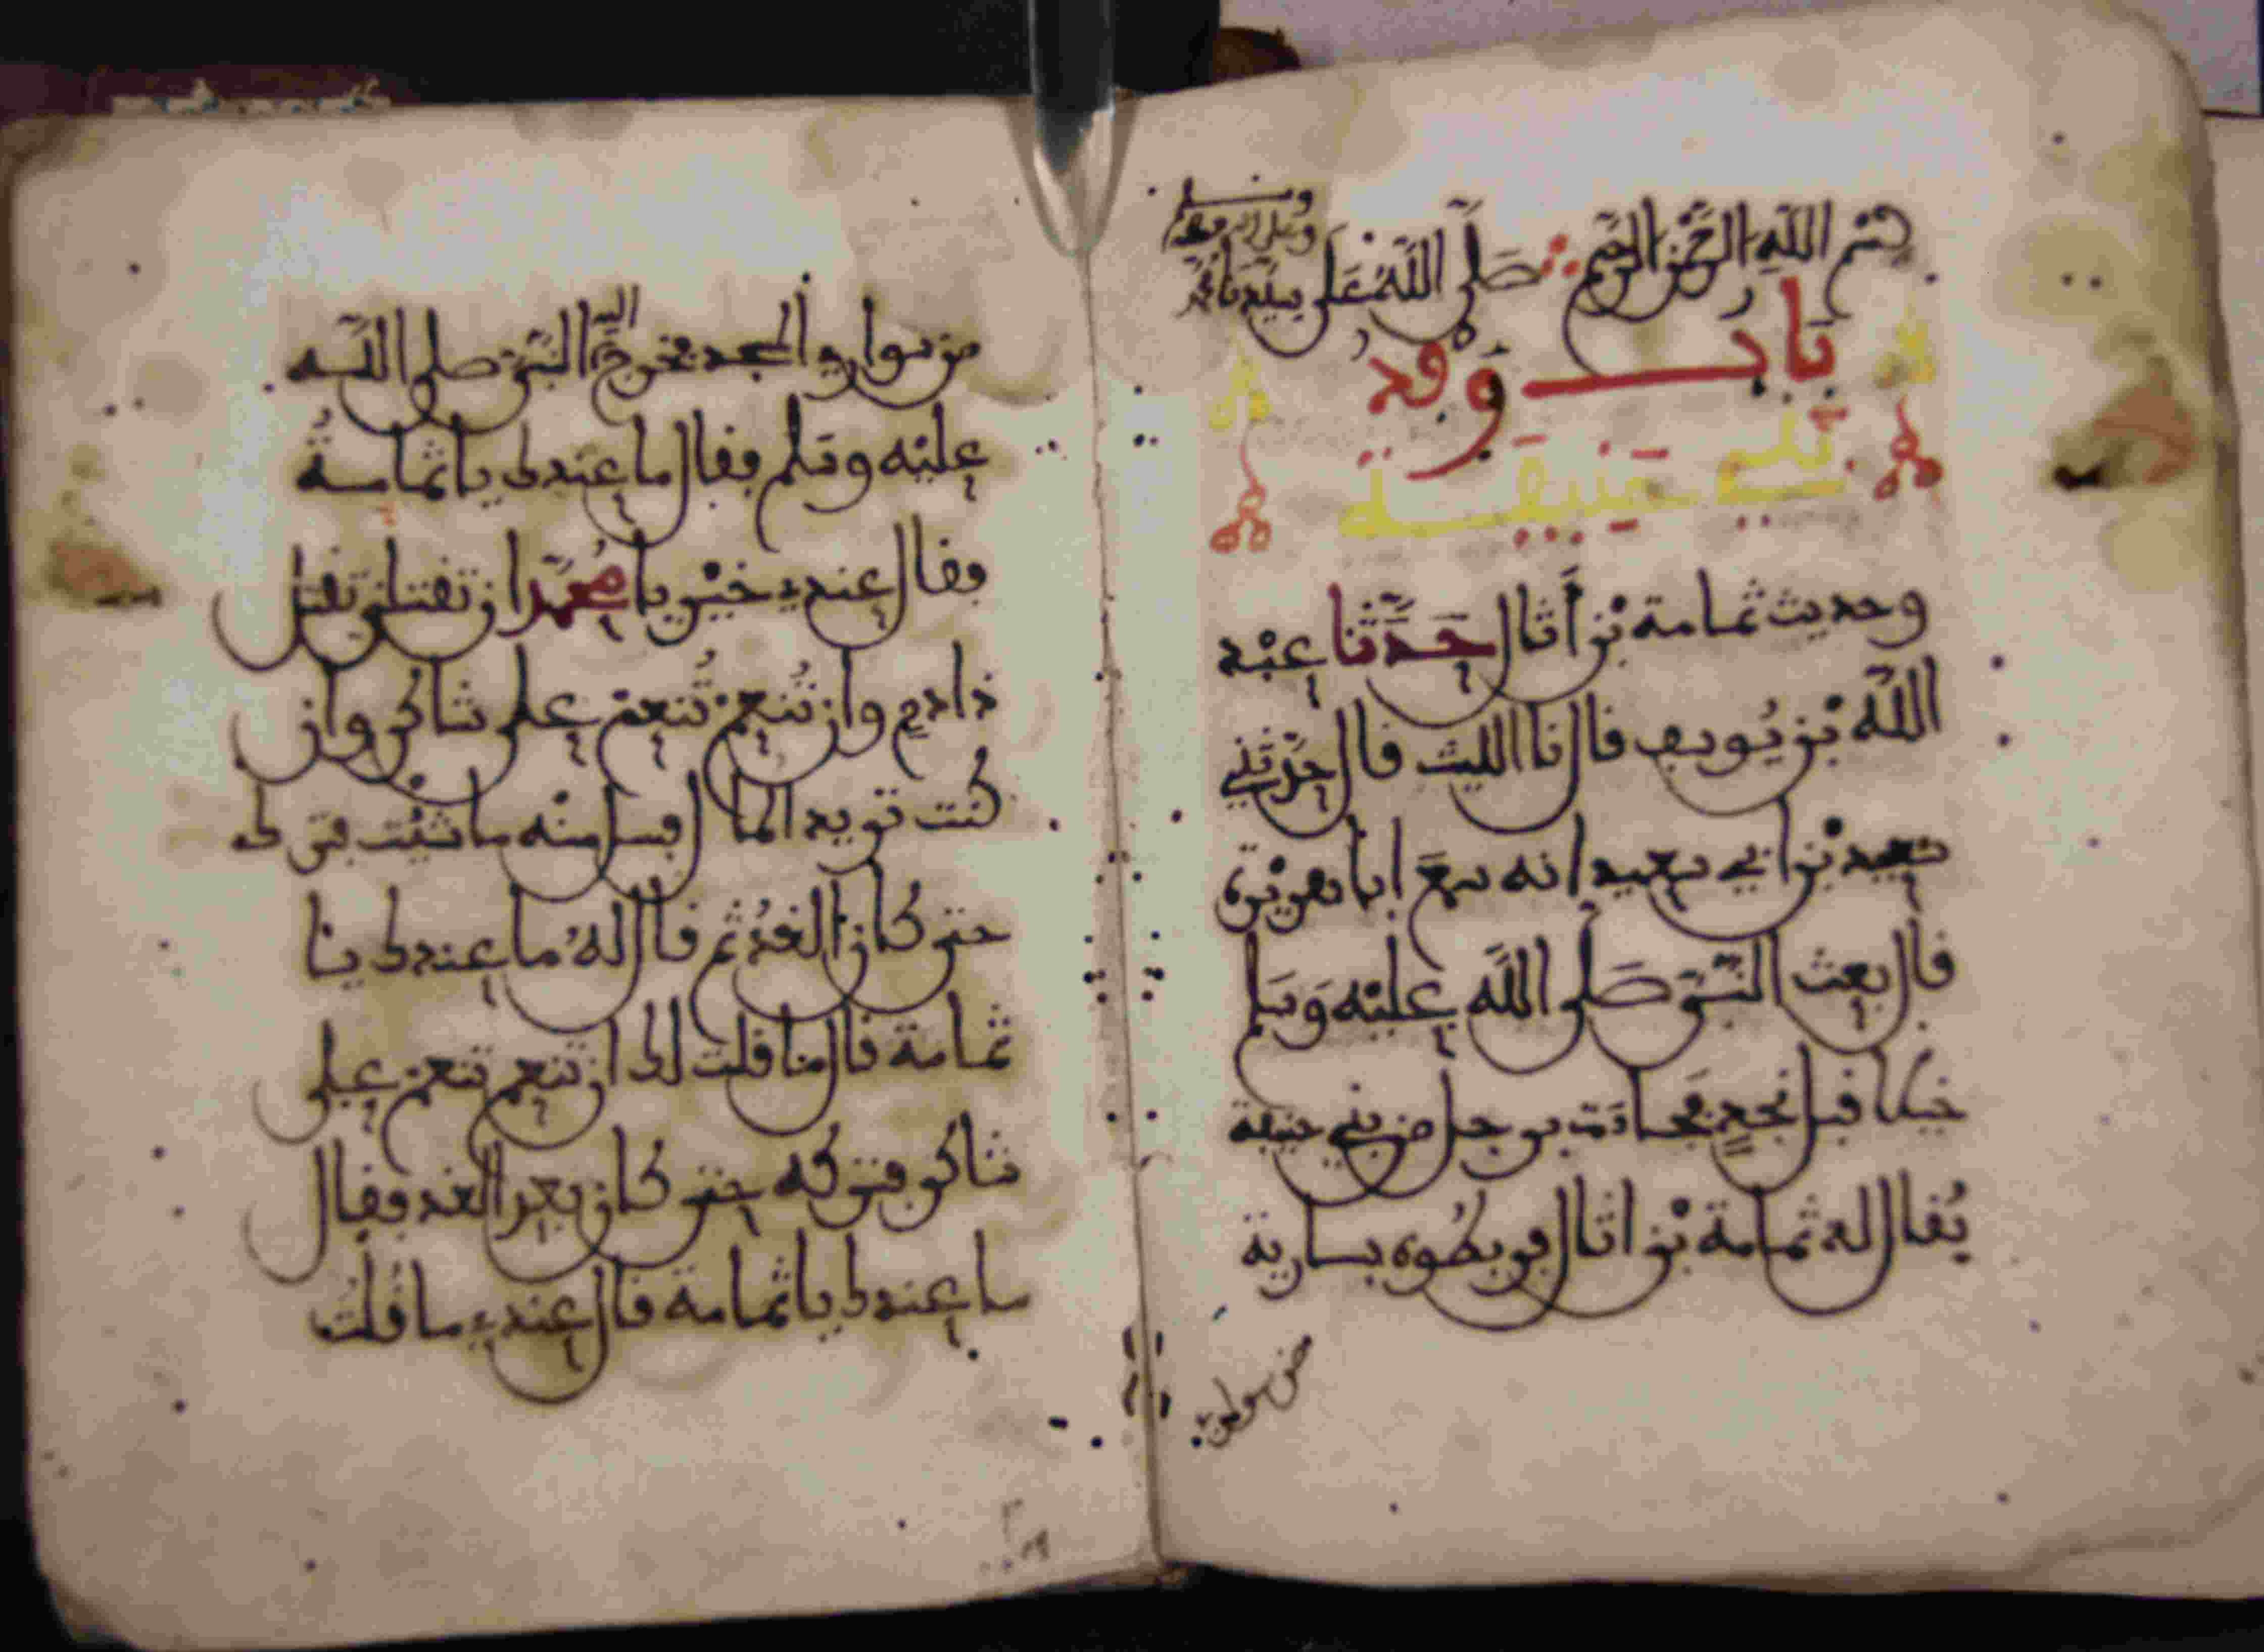 بسم الله الرحمن الرحيم صلى الله على سيدنا محمد
وعلى اله وصحبه
وسلم
باب وفد
بني حنيفة
وحديث ثمامة بن أثال حدثنا عبد
الله بن يوسف قال نا الليث قال حدثني
سعيد بن أبي سعيد انه سمع ابا هريرة
قال بعث النبي صلى الله عليه وسلم
خيلا قبل نجد فجاءت برجل من بني حنيفة
يقال له ثمامة بن اثال فربطوه بسارية
من سوارى
من سوارى المسجد فخرج اليه النبي صلى الله
عليه وسلم فقال ما عندك يا ثمامة
فقال عندي خير يا محمد ان تقتلني تقتل
ذا دم وان تنعم تنعم على شاكر وان
كنت تريد المال فسل منه ما شيت فترك
حتى كان الغد ثم قال له ما عندك يا
ثمامة قال ما قلت لك ان تنعم تنعم على
شاكر فتركه حتى كان بعد الغد فقال
ما عندك يا ثمامة قال عندي ما قلت